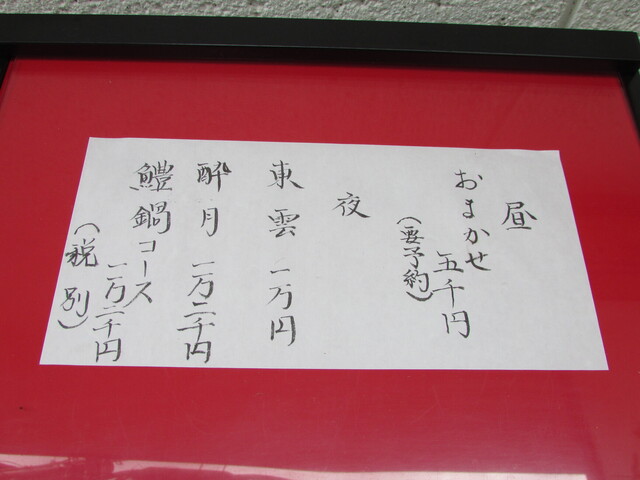 昼
おまかせ 五千円
(要予約)
夜
東雲 一万円
酔月 一万二千円
鱧鍋コース 一万二千円
(税別)